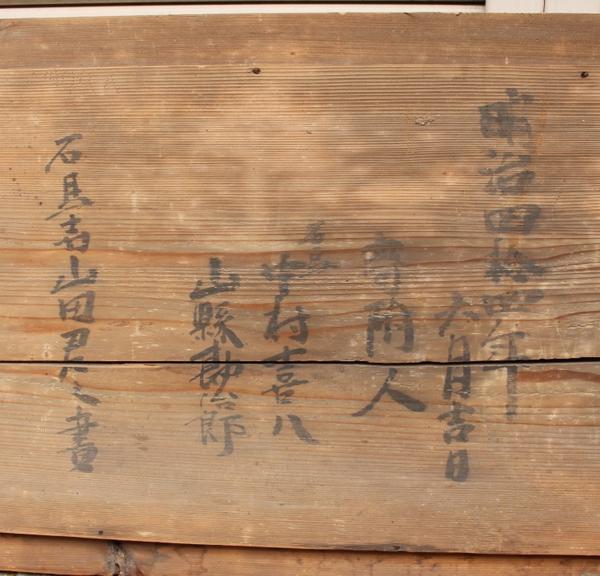 明治四拾四年
六月吉日
寄附人
中村喜八
山縣勘治郎
山田君之畫